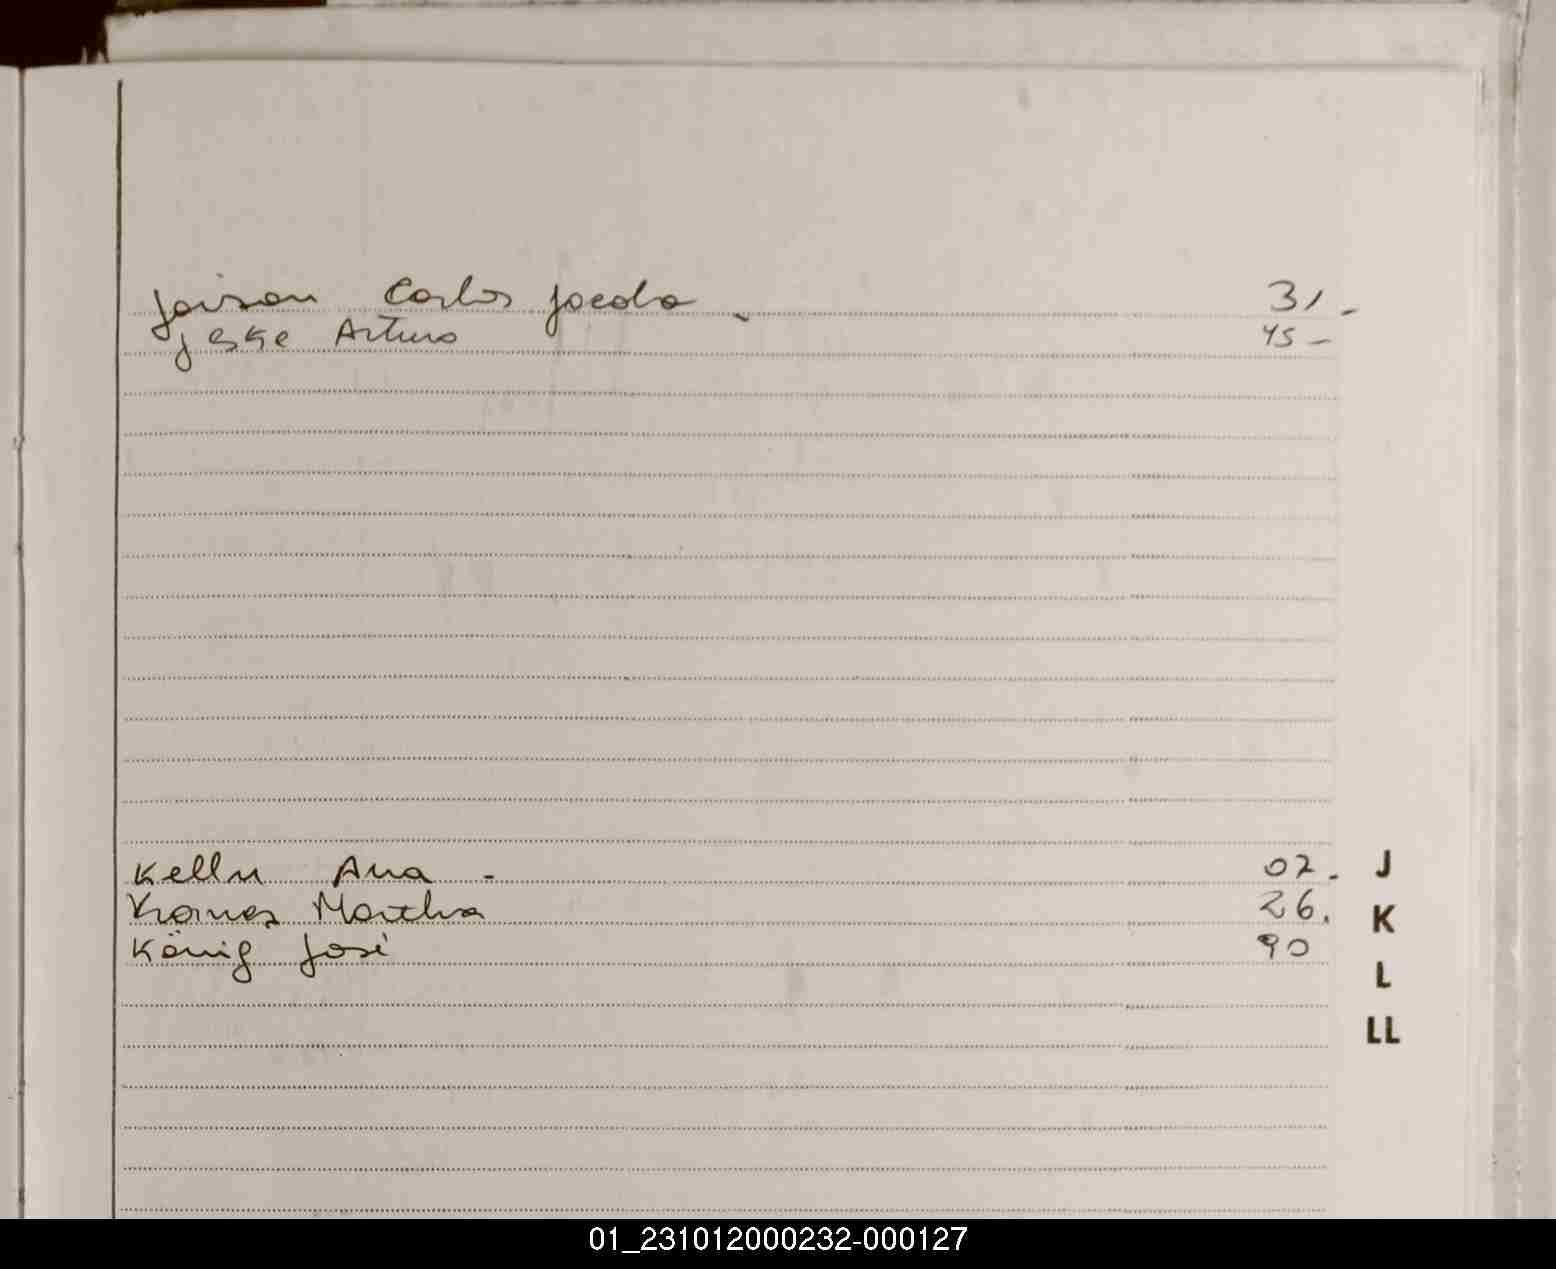 Jaison Carlos Jacobo. 31.-
Jeske Arturo 45-
Keller Ana - 02.-
Kornes Martha 26.
König José 90
J
K
L
LL
01_231012000232-000127